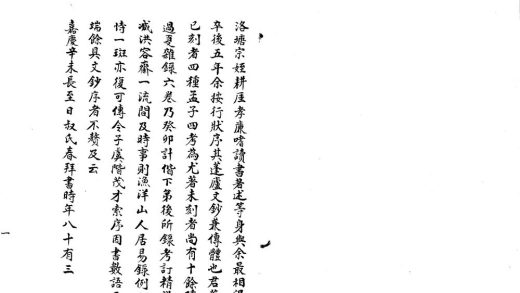 洛塘宗姪耕厓孝廉嗜讀書著述等身與余最相
卒後五年余按行狀序其蓬廬文鈔兼傳體也君
已刻者四種孟子四考為尤著未刻者尚有十餘
過夏雜錄六卷乃癸卯計偕下第後所錄考訂精
減洪容齋一流間及時事則漁洋山人居易錄例
特一斑亦復可傳令子虞階茂才索序因書數語
端餘具文鈔序者不贅及云
嘉慶辛未長至日叔氏春拜書時年八十有三
一